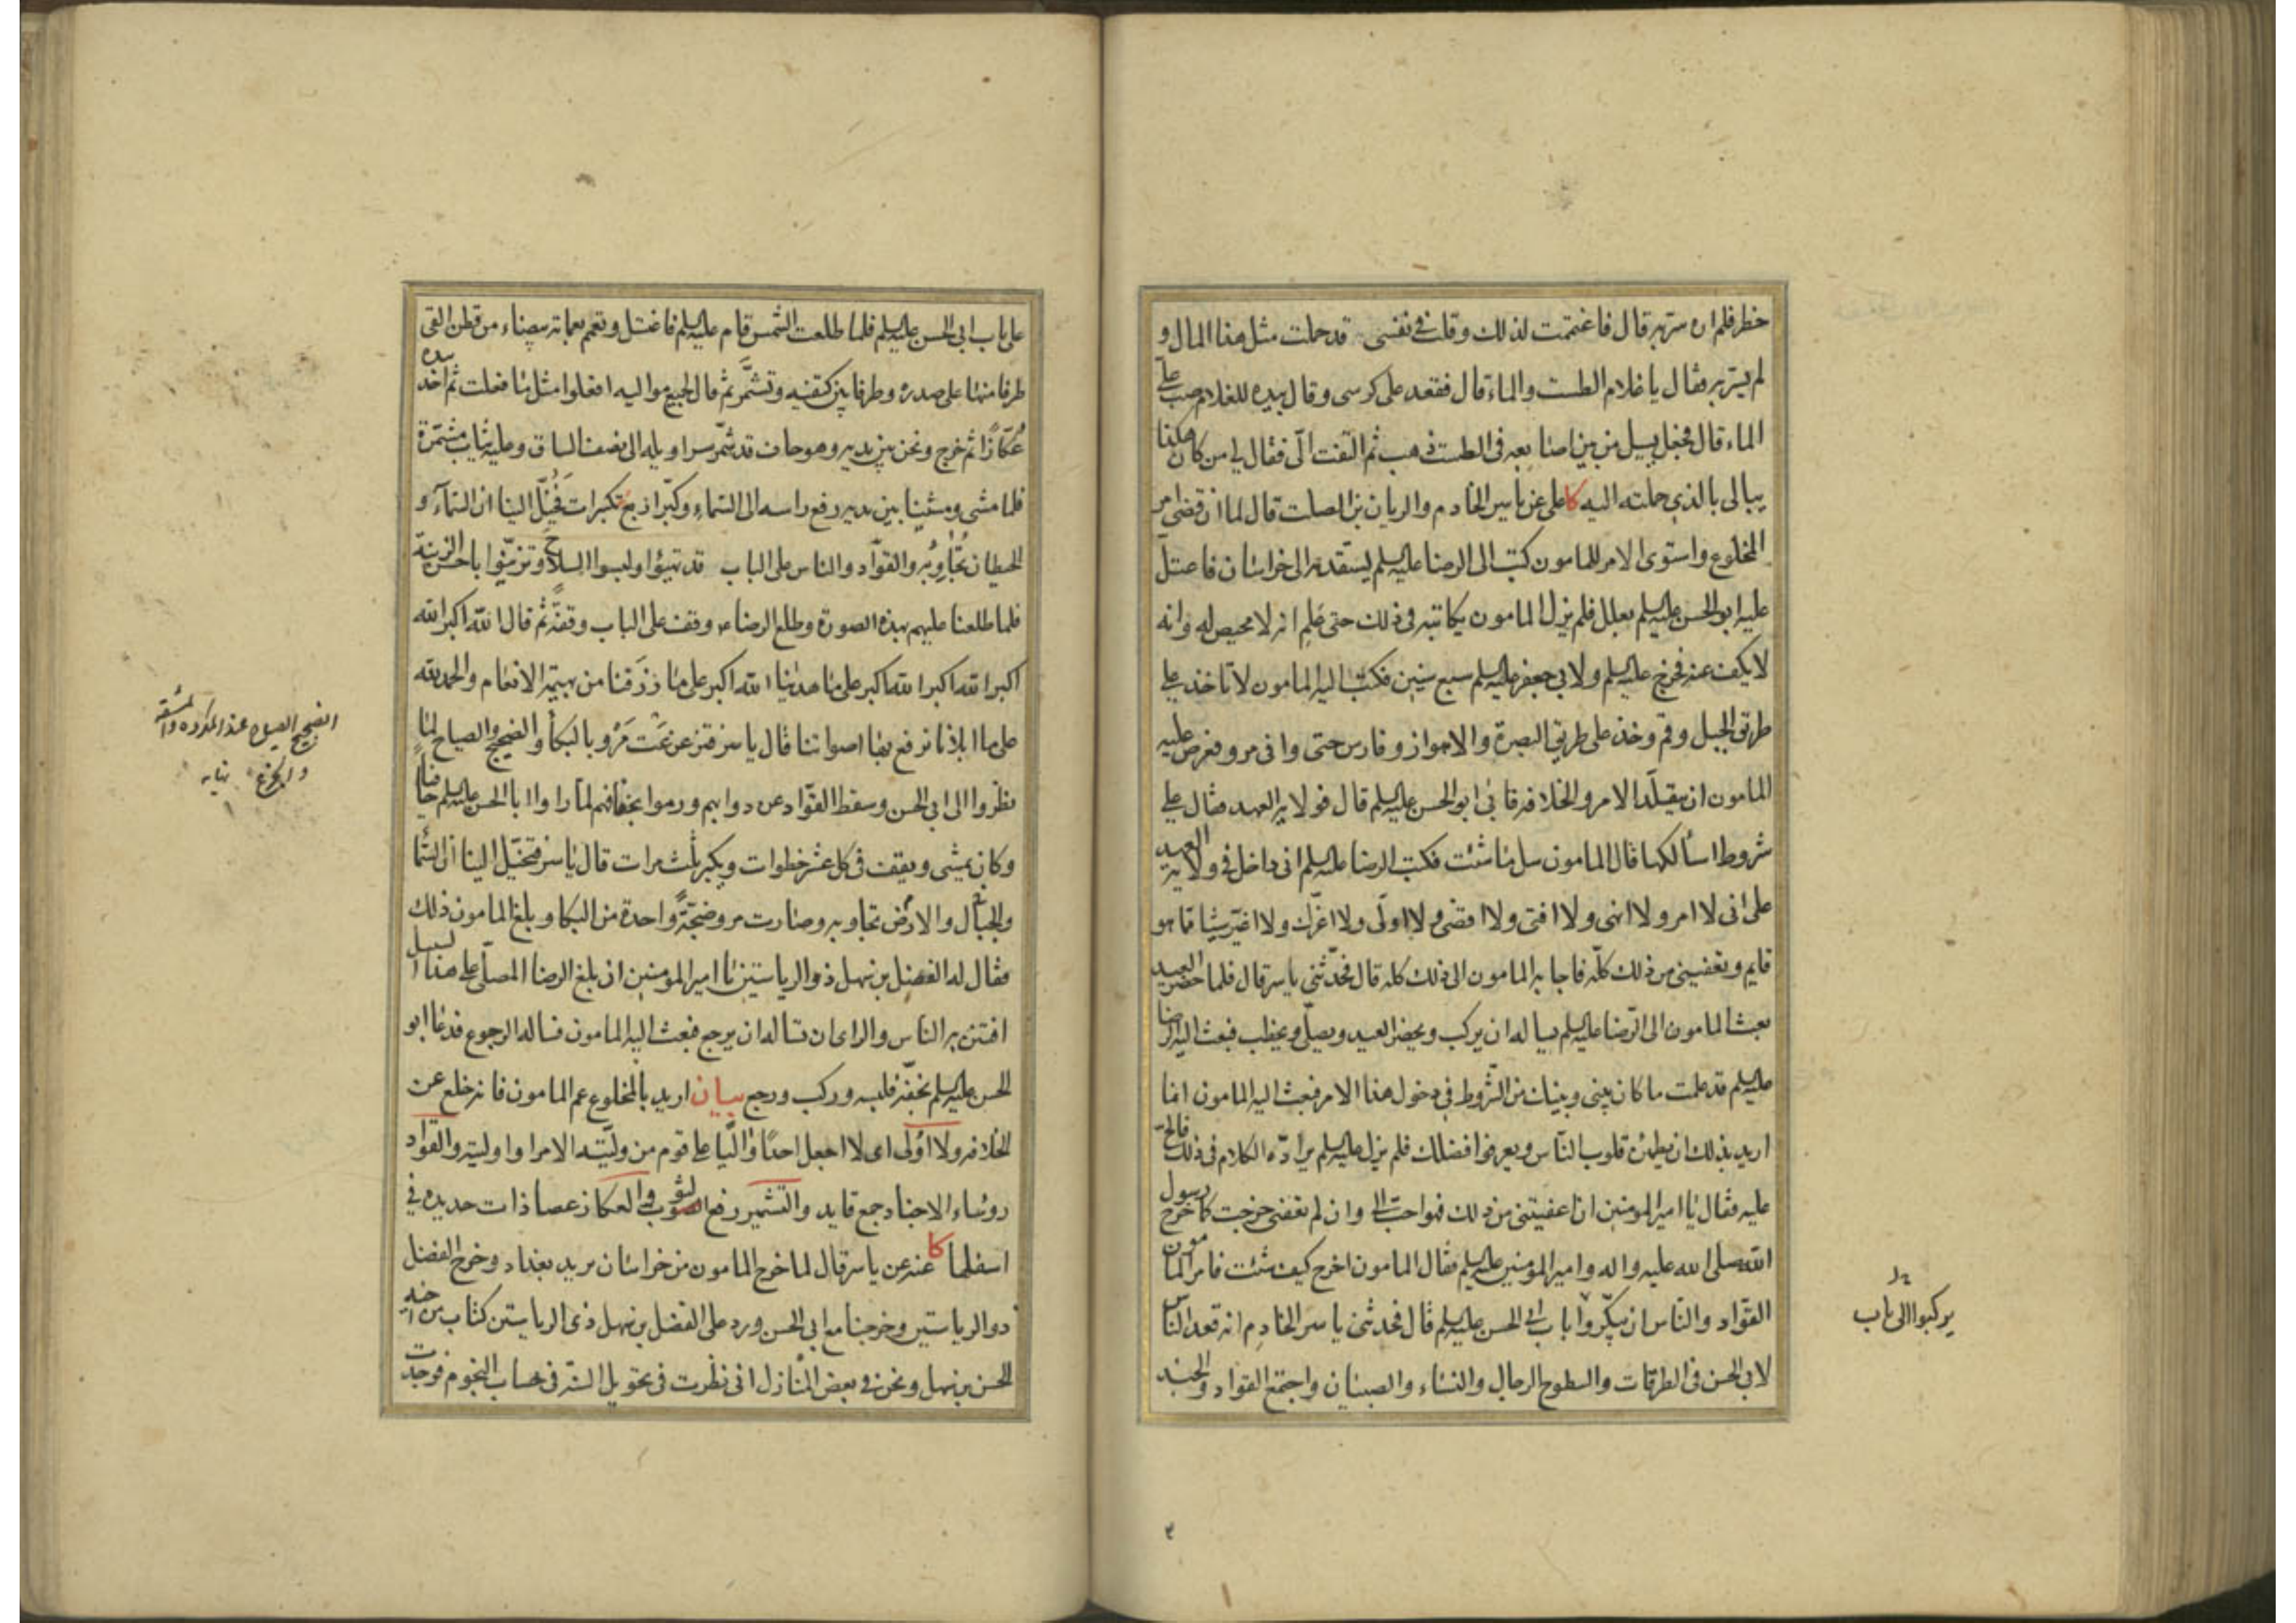 خطر فلم اره سر به قال فاغتممت لذلك وقلت في نفسى قد حملت مثل هذا المال و
لم يسر به فقال يا غلام الطست والماء قال فقعد على كرسى وقال بيده للغلام صب على
الماء قال فجعل يسيل من بين اصابعه فى الطست ذهب ثم التفت الىّ فقال لي من كان هكذا
يبالى بالذى حملته اليه كا على عن ياسر الخادم والريان بن الصلت قال لما انقضى امر
المخلوع واستوى الامر للمامون كتب الى الرضا عليه السلم يستقدمه الى خراسان فاعتل
عليه ابو الحسن عليه السلم بعلل فلم يزل المامون يكاتبه فى ذلك حتى علم انه لا محيص له وانه
لا يكف عنه فخرج عليه السلم ولابى جعفر عليه السلم سبع سنين فكتب اليه المامون لا تاخذ على
طريق الجبل وقم وخذ على طريق البصرة والاهواز وفارس حتى وافى مرو فعرض عليه
المامون ان يتقلّد الامر والخلافة فابى ابو الحسن عليه السلم قال فولاية العهد فقال على
شروط اسألكها قال المامون سل ما شئت فكتب الرضا عليه السلم انى داخل فى ولاية العهد
على انى لا امر ولا انهى ولا افتى ولا اقضى ولا اولّى ولا اعزل ولا اغيّر شيئا مما هو
قايم وتعفينى من ذلك كلّه فاجابه المامون الى ذلك كله قال فحدّثنى ياسر قال فلما حضر العيد
بعث المامون الى الرّضا عليه السلم يساله ان يركب ويحضر العيد ويصلّى ويخطب فبعث اليه الرضا
عليه السلم قد علمت ما كان بينى وبينك من الشّروط فى دخول هذا الامر فبعث اليه المامون انما
اريد بذلك ان يطمئن قلوب النّاس ويعرفوا فضلك فلم يزل عليه السلم يرادّه الكلام فى ذلك فالحّ
عليه فقال يا امير المؤمنين ان اعفيتنى من ذلك فهو احب الى وان لم تعفنى خرجت كما خرج رسول
الله صلى الله عليه واله وامير المؤمنين عليه السلم فقال المامون اخرج كيف شئت فامر المامون
القوّاد والنّاس ان يبكّروا اباب ابى الحسن عليه السلم قال فحدثنى ياسر الخادم انه قعد النّاس
لابى الحسن فى الطرقات والسطوح الرجال والنساء والصبيان واجتمع القواد والجند
يركبوا الى باب
على باب ابى الحسن عليه السلم فلما طلعت الشمس قام عليه السلم فاغتسل وتعمم بعمامة بيضاء من قطن القى
طرفا منها على صدره وطرفا بين كتفيه وتشمّر ثم قال لجميع مواليه افعلوا مثل ما فعلت ثم اخذ بيده
عُكّازًا ثم خرج ونحن بين يديه وهو حاف قد شمّر سراويله الى نصف الساق وعليه ثياب مشمّرة
فلما مشى ومشينا بين يديه رفع راسه الى السّماء وكبّر اربع تكبيرات فخُيّل الينا ان السّمآء و
الحيطان تُجَاوِبُه والقوّاد والناس على الباب قد تهيؤا ولبسوا السلاح وتزيّنوا باحسن الزينة
فلما طلعنا عليهم بهذه الصورة وطلع الرضا ع وقف على الباب وقفة ثم قال الله اكبر الله
اكبر الله اكبر الله اكبر على ما هدينا الله اكبر على ما رزقنا من بهيمة الانعام والحمد لله
على ما ابلانا نرفع بها اصواتنا قال ياسر فتزعزعت مَرْو بالبكاء والضجيج والصياح لما
نظروا الى ابى الحسن وسقط القوّاد عن دوابهم ورموا بخفافهم لما راوا ابا الحسن عليه السلم حافيا
وكان يمشى ويقف فى كل عشر خطوات ويكبر ثلث مرات قال ياسر فتخيّل الينا ان السّما
والجبال والارض تجاوبه وصارت مرو ضجّة واحدة من البكا وبلغ المامون ذلك
فقال له الفضل بن سهل ذو الرياستين يا امير المؤمنين ان بلغ الرضا المصلّى على هذا السبيل
افتتن به الناس والراى ان تساله ان يرجع فبعث اليه المامون فساله الرجوع فدعا ابو
الحسن عليه السلم بخفّه فلبسه وركب ورجع بيان اريد بالمخلوع عم المامون فانه خلع عن
الخلافه ولا اُولّى اى لا اجعل احدًا واليًا على قوم من ولّيته الامر او اوليته والقوّاد
رؤساء الاجناد جمع قايد والتشمير رفع الثوب والعكاز عصا ذات حديده فى
اسفلها كا عنه عن ياسر قال لما خرج المامون من خراسان يريد بغداد وخرج الفضل
ذو الرياستين وخرجنا مع ابى الحسن ورد على الفضل بن سهل ذى الرياستين كتاب من اخيه
الحسن بن سهل ونحن فى بعض المنازل انى نظرت فى تحويل السنة فى حساب النجوم فوجدت
الضجيج الصياح عند المكروه والمشقه
والجزع نهايه